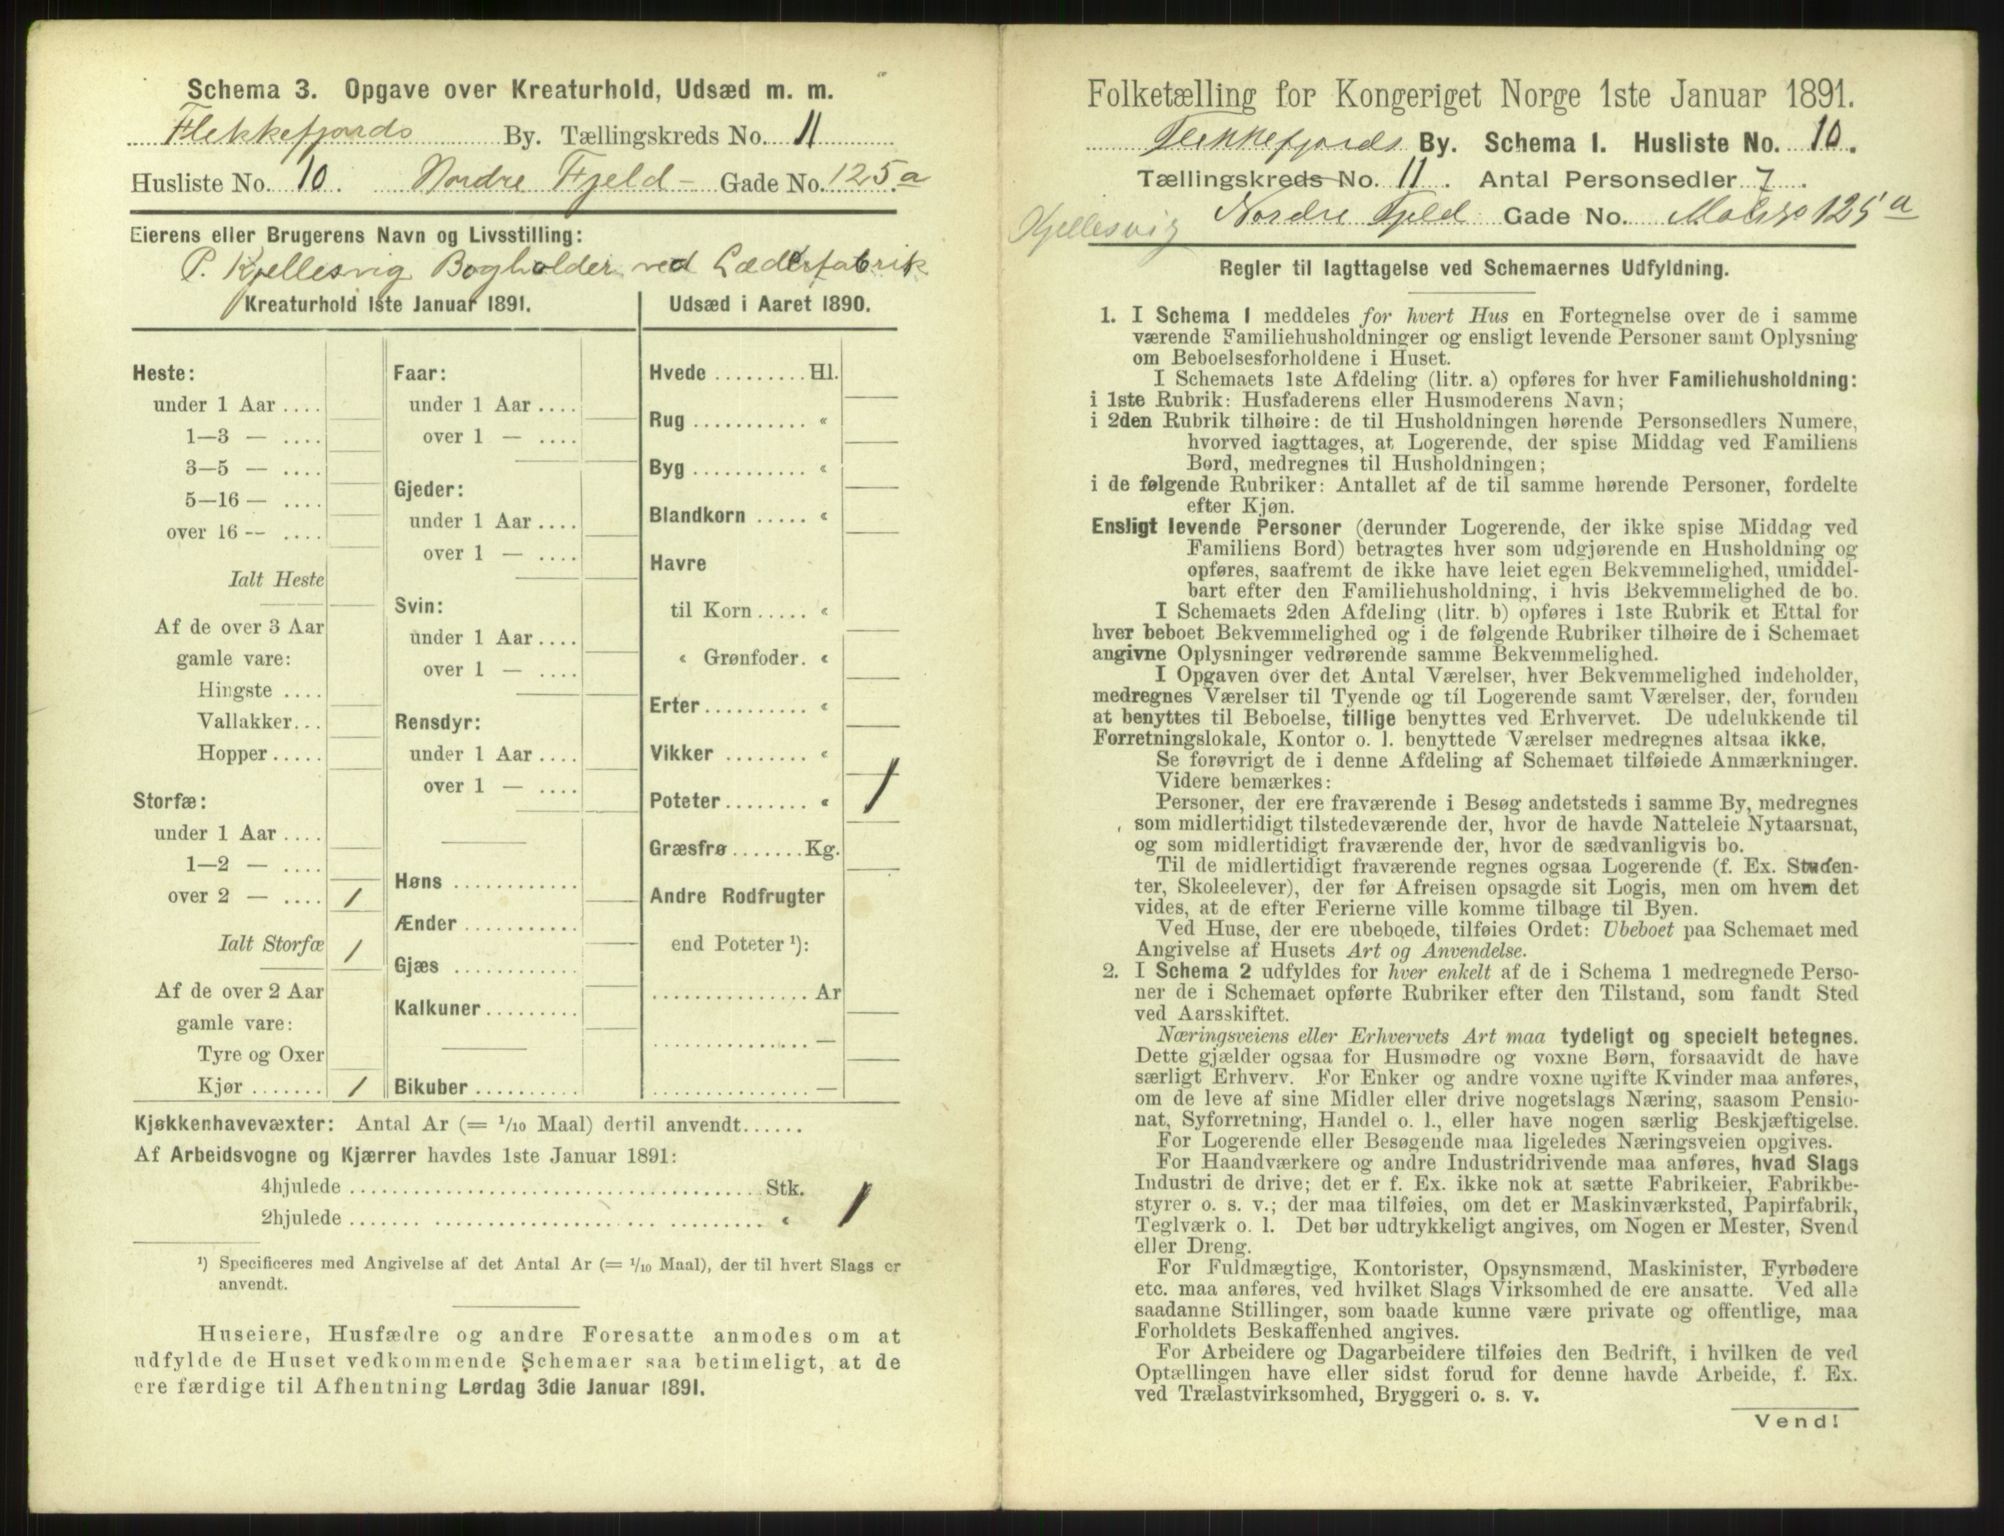 Schema 3. Opgave over Kreaturhold, Udsæd m. m.
Flekkefjords By. Tællingskreds No. 11
Husliste No. 10. Nordre Fjeld- Gade No. 125a
Eierens eller Brugerens Navn og Livsstilling:
P. Kjellesvig Bogholder ved Læderfabrik
Kreaturhold 1ste Januar 1891.
Heste:
under 1 Aar ....
1—3 — ....
3—5 — ....
5—16 — ....
over 16 -- ....
Ialt Heste
Af de over 3 Aar
gamle vare:
Hingste ....
Vallakker...
Hopper .....
Storfæ:
under 1 Aar ....
1—2 — ....
over 2 — .... 1
Ialt Storfæ 1
Af de over 2 Aar
gamle vare:
Tyre og Oxer
Kjør ....... 1
Faar:
under 1 Aar ....
over 1 — ....
Gjeder:
under 1 Aar ....
over 1 — ....
Svin:
under 1 Aar ....
over 1 — ....
Rensdyr:
under 1 Aar ....
over 1 — ....
Høns ............
Ænder ...........
Gjæs ............
Kalkuner .........
Bikuber ..........
Udsæd i Aaret 1890.
Hvede ......... Hl.
Rug ........... «
Byg ........... «
Blandkorn ..... «
Havre
til Korn ..... «
« Grønfoder. «
Erter .......... «
Vikker ........ «
Poteter ........ « 1
Græsfrø ....... Kg.
Andre Rodfrugter
end Poteter ¹):
............... Ar
............... —
............... —
Kjøkkenhavevæxter: Antal Ar (= 1/10 Maal) dertil anvendt......
Af Arbeidsvogne og Kjærrer havdes 1ste Januar 1891:
4hjulede ........................................ Stk.
2hjulede ........................................ « 1
¹) Specificeres med Angivelse af det Antal Ar (= 1/10 Maal), der til hvert Slags er
anvendt.
Huseiere, Husfædre og andre Foresatte anmodes om at
udfylde de Huset vedkommende Schemaer saa betimeligt, at de
ere færdige til Afhentning Lørdag 3die Januar 1891.
Folketælling for Kongeriget Norge 1ste Januar 1891.
Flekkefjords By. Schema 1. Husliste No. 10.
Tællingskreds No. 11. Antal Personsedler 7.
Kjellesvig Nordre Fjeld Gade No. 125a
Regler til Iagttagelse ved Schemaernes Udfyldning.
1. I Schema 1 meddeles for hvert Hus en Fortegnelse over de i samme
værende Familiehusholdninger og ensligt levende Personer samt Oplysning
om Beboelsesforholdene i Huset.
I Schemaets 1ste Afdeling (litr. a) opføres for hver Familiehusholdning:
i 1ste Rubrik: Husfaderens eller Husmoderens Navn;
i 2den Rubrik tilhøire: de til Husholdningen hørende Personsedlers Numere,
hvorved iagttages, at Logerende, der spise Middag ved Familiens
Bord, medregnes til Husholdningen;
i de følgende Rubriker: Antallet af de til samme hørende Personer, fordelte
efter Kjøn.
Ensligt levende Personer (derunder Logerende, der ikke spise Middag ved
Familiens Bord) betragtes hver som udgjørende en Husholdning og
opføres, saafremt de ikke have leiet egen Bekvemmelighed, umiddel-
bart efter den Familiehusholdning, i hvis Bekvemmelighed de bo.
I Schemaets 2den Afdeling (litr. b) opføres i 1ste Rubrik et Ettal for
hver beboet Bekvemmelighed og i de følgende Rubriker tilhøire de i Schemaet
angivne Oplysninger vedrørende samme Bekvemmelighed.
I Opgaven over det Antal Værelser, hver Bekvemmelighed indeholder,
medregnes Værelser til Tyende og til Logerende samt Værelser, der, foruden
at benyttes til Beboelse, tillige benyttes ved Erhvervet. De udelukkende til
Forretningslokale, Kontor o. l. benyttede Værelser medregnes altsaa ikke.
Se forøvrigt de i denne Afdeling af Schemaet tilføiede Anmærkninger.
Videre bemærkes:
Personer, der ere fraværende i Besøg andetsteds i samme By, medregnes
som midlertidigt tilstedeværende der, hvor de havde Natteleie Nytaarsnat,
og som midlertidigt fraværende der, hvor de sædvanligvis bo.
Til de midlertidigt fraværende regnes ogsaa Logerende (f. Ex. Studen-
ter, Skoleelever), der før Afreisen opsagde sit Logis, men om hvem det
vides, at de efter Ferierne ville komme tilbage til Byen.
Ved Huse, der ere ubeboede, tilføies Ordet: Ubeboet paa Schemaet med
Angivelse af Husets Art og Anvendelse.
2. I Schema 2 udfyldes for hver enkelt af de i Schema 1 medregnede Perso-
ner de i Schemaet opførte Rubriker efter den Tilstand, som fandt Sted
ved Aarsskiftet.
Næringsveiens eller Erhvervets Art maa tydeligt og specielt betegnes.
Dette gjælder ogsaa for Husmødre og voxne Børn, forsaavidt de have
særligt Erhverv. For Enker og andre voxne ugifte Kvinder maa anføres,
om de leve af sine Midler eller drive nogetslags Næring, saasom Pensio-
nat, Syforretning, Handel o. l., eller have nogen særlig Beskjæftigelse.
For Logerende eller Besøgende maa ligeledes Næringsveien opgives.
For Haandværkere og andre Industridrivende maa anføres, hvad Slags
Industri de drive; det er f. Ex. ikke nok at sætte Fabrikeier, Fabrikbe-
styrer o. s. v.; der maa tilføies, om det er Maskinværksted, Papirfabrik,
Teglværk o. l. Det bør udtrykkeligt angives, om Nogen er Mester, Svend
eller Dreng.
For Fuldmægtige, Kontorister, Opsynsmænd, Maskinister, Fyrbødere
etc. maa anføres, ved hvilket Slags Virksomhed de ere ansatte. Ved alle
saadanne Stillinger, som baade kunne være private og offentlige, maa
Forholdets Beskaffenhed angives.
For Arbeidere og Dagarbeidere tilføies den Bedrift, i hvilken de ved
Optællingen have eller sidst forud for denne havde Arbeide, f. Ex.
ved Trælastvirksomhed, Bryggeri o. s. v.
Vend!